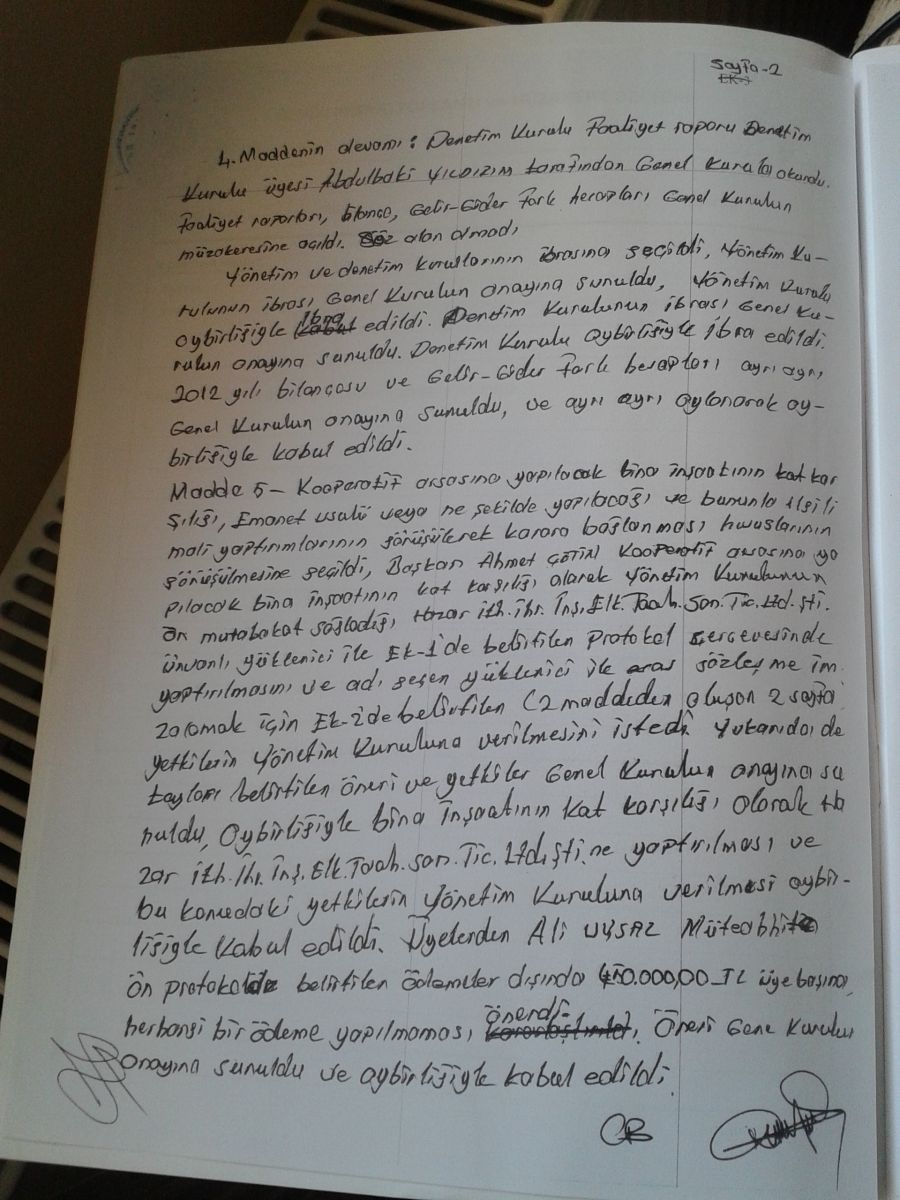 Sayfa-2
EK-3
4. Maddenin devamı: Denetim Kurulu Faaliyet raporu Denetim
Kurulu üyesi Abdulbaki YILDIZIM tarafından Genel Kurula okundu.
Faaliyet raporları, bilanço, Gelir-Gider Fark hesapları Genel Kurulun
müzakeresine açıldı. Söz alan olmadı
Yönetim ve denetim kurullarının ibrasına geçildi, Yönetim Ku-
rulunun ibrası Genel Kurulun onayına sunuldu, Yönetim Kurulu
oybirliğiyle ibra edildi. Denetim Kurulunun ibrası Genel Ku-
rulun onayına sunuldu. Denetim Kurulu oybirliğiyle ibra edildi.
2012 yılı bilançosu ve Gelir-Gider fark hesapları ayrı ayrı
Genel Kurulun onayına sunuldu, ve ayrı ayrı oylanarak oy-
birliğiyle kabul edildi.
Madde 5- Kooperatif arsasına yapılacak bina inşaatının kat kar
şılığı, Emanet usulü veya ne şekilde yapılacağı ve bununla ilgili
mali yaptırımlarının görüşülerek karara bağlanması hususlarının
görüşülmesine geçildi, Başkan Ahmet ÇETİN Kooperatif arsasına ya
pılacak bina inşaatının kat karşılığı olarak Yönetim Kurulunun
ön mutabakat sağladığı, Hazar ith.ihr. İnş. Elk. Taah. San. Tic. Ltd. şti.
ünvanlı yüklenici ile Ek-1'de belirtilen Protokol çerçevesinde
yaptırılmasını ve adı geçen yüklenici ile sözleşme im
zalamak için Ek-2'de belirtilen (2 maddeden oluşan 2 sayfa
yetkilerin Yönetim Kuruluna verilmesini istedi. Yukarıda de
tayları belirtilen öneri ve yetkiler Genel Kurulun onayına su
nuldu, Oybirliğiyle bina inşaatının Kat karşılığı olarak Ha
zar ith. ihr. İnş. Elk. Taah. San. Tic. Ltd. şti.ne yaptırılması ve
bu konudaki yetkilerin Yönetim Kuruluna verilmesi oybir-
liğiyle kabul edildi. Üyelerden Ali UYSAL Müteahhite
ön protokolde belirtilen ödemeler dışında 0.000,00 TL üye başına
herhangi bir ödeme yapılmaması önerdi. Öneri Gene Kurulun
onayına sunuldu ve oybirliğiyle kabul edildi.